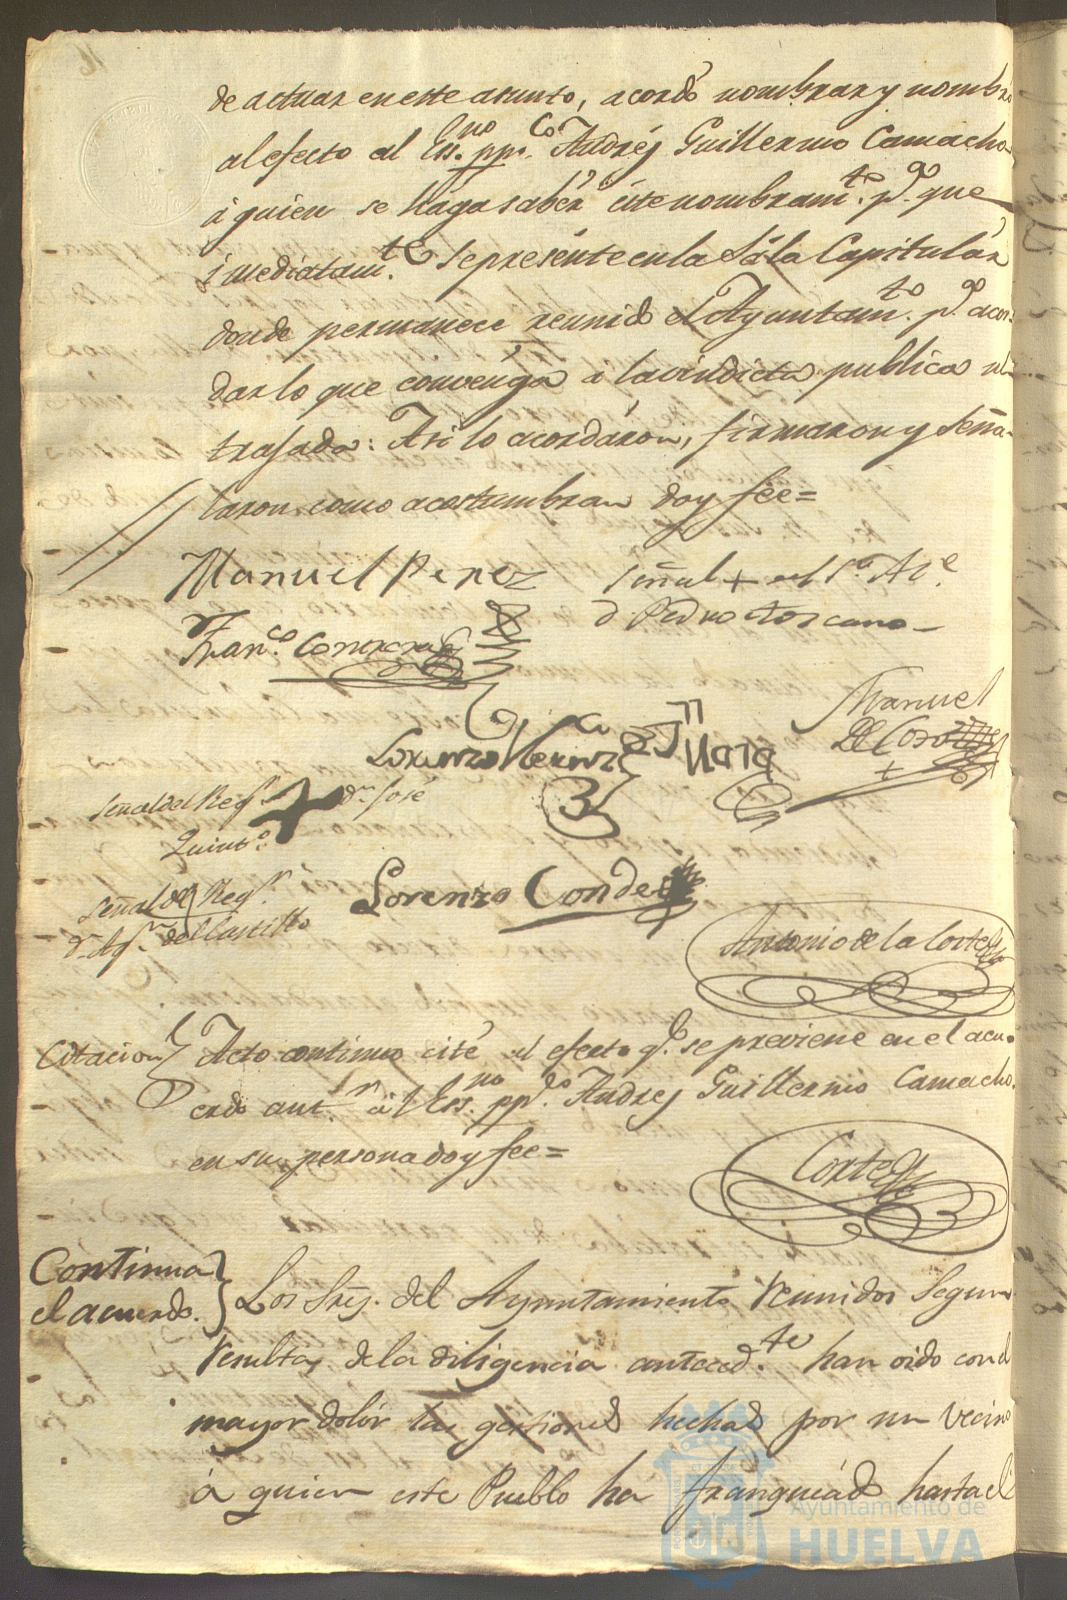 de actuar en este asunto, acordó nombrar y nombró
al efecto al Ess.no pp.co Andrés Guillermo Camacho
á quien se haga saber éste nombram.to p.a que
inmediatam.te se presénte en la Sála Capitulár
donde permanece reunido el Ayuntam.to p.a acor-
dar lo que convenga a la vindicta publica ul-
trajada: Asi lo acordáron, firmaron y señá-
laron como acostumbran doy fee=
Manuel Perez
señal + del S.r Al.e
d.n Pedro Toscano
Fran.co Contreras
Manuel
Lorenzo
señal del Reg.r + d.n José
Quint.o
Lorenzo Conde
señal del Reg.r
d.n Ag.n del Castillo
Antonio de la Corte
Citacion Acto continuo cité al efecto q.e se previene en el acu-
erdo ant.r á el Ess.no pp.co Andres Guillermo Camacho
en su persona doy fee=
Corte
Continua
el acuerdo. Los Sres. del Ayuntamiento reunidos segun
resulta de la diligencia anteced.te han oido con el
mayor dolór las gestiones hechas por un vecino
á quien este Pueblo ha franqueádo hasta el
Ayuntamiento de
HUELVA